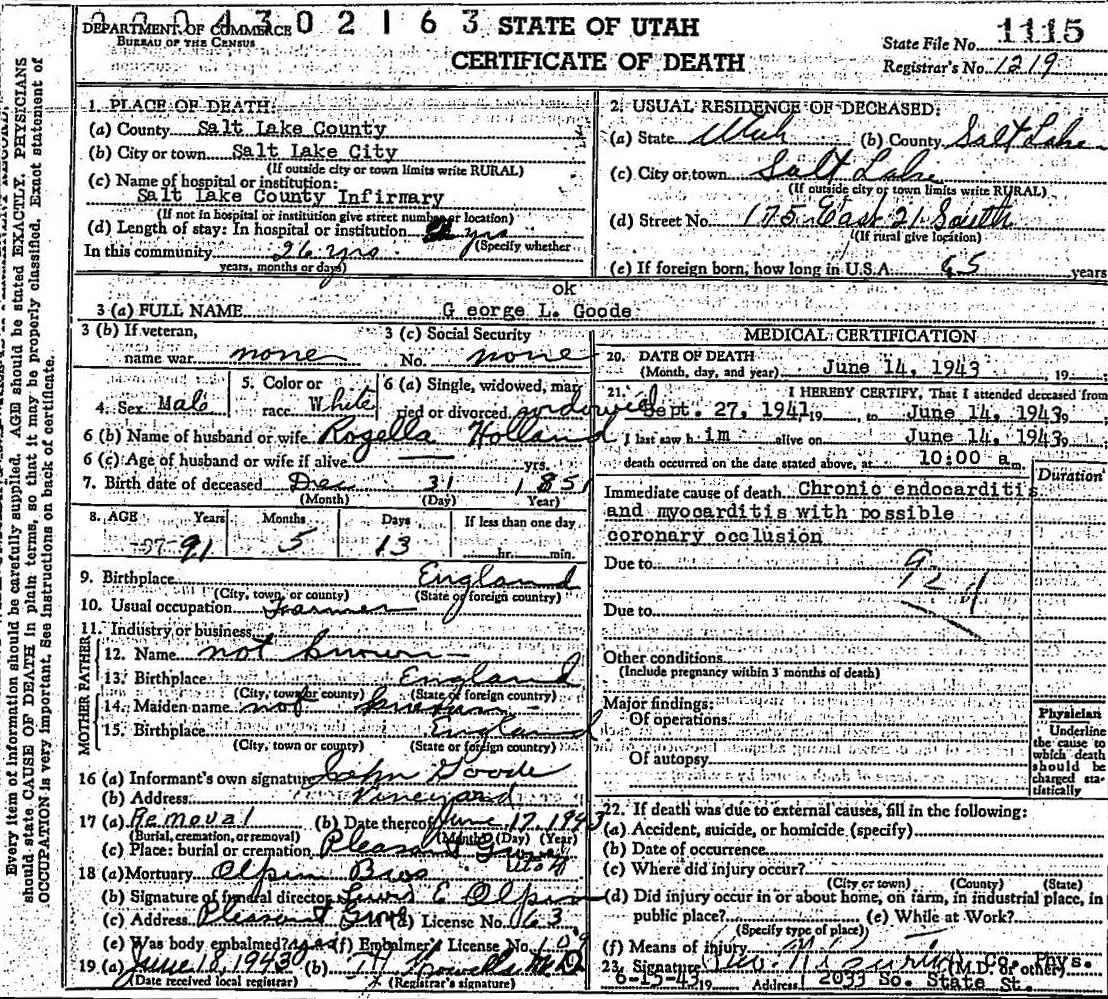 0 0 0 4 3 0 2 1 6 3
STATE OF UTAH
1115
DEPARTMENT OF COMMERCE
BUREAU OF THE CENSUS
State File No.
CERTIFICATE OF DEATH
Registrar's No. 1219
Every item of information should be carefully supplied. AGE should be stated EXACTLY. PHYSICIANS
should state CAUSE OF DEATH in plain terms, so that it may be properly classified. Exact statement of
OCCUPATION is very important. See instructions on back of certificate.
1. PLACE OF DEATH:
(a) County Salt Lake County
(b) City or town Salt Lake City
(If outside city or town limits write RURAL)
(c) Name of hospital or institution:
Salt Lake County Infirmary
(If not in hospital or institution give street number or location)
(d) Length of stay: In hospital or institution yrs
(Specify whether
In this community 26 yrs.
years, months or days)
2. USUAL RESIDENCE OF DECEASED:
(a) State Utah (b) County Salt Lake
(c) City or town Salt Lake
(If outside city or town limits write RURAL)
(d) Street No. 175 East 21 South
(If rural give location)
(e) If foreign born, how long in U.S.A. 65 years
ok
3 (a) FULL NAME G eorge L. Goode
3 (b) If veteran,
name war none
3 (c) Social Security
No. none
4. Sex Male
5. Color or
race White
6 (a) Single, widowed, mar
ried or divorced widowed
6 (b) Name of husband or wife Rozella Holland
6 (c) Age of husband or wife if alive — yrs.
7. Birth date of deceased Dec 31 1851
(Month) (Day) Year)
8. AGE Years Months Days If less than one day
91 5 13 hr. min.
9. Birthplace England
(City, town, or county) (State of foreign country)
10. Usual occupation Farmer
11. Industry or business
FATHER
12. Name not known
13. Birthplace England
(City, town or county) (State of foreign country)
MOTHER
14. Maiden name not known
15. Birthplace England
(City, town or county) (State or foreign country)
16 (a) Informant's own signature John Goode
(b) Address Vineyard
17 (a) Removal (b) Date thereof June 17 1943
(Burial, cremation, or removal) (Month) (Day) (Year)
(c) Place: burial or cremation Pleasant Grove
Utah
18 (a) Mortuary Olpin Bros
(b) Signature of funeral director Lewis E Olpin
(c) Address Pleasant Grove (d) License No. 63
(e) Was body embalmed? (f) Embalmer's License No. 109
19 (a) June 18, 1943 (b)
(Date received local registrar) (Registrar's signature)
MEDICAL CERTIFICATION
20. DATE OF DEATH
(Month, day, and year) June 14, 1943 , 19
21. I HEREBY CERTIFY, That I attended deceased from
Sept. 27, 1941 19 to June 14, 1943 9
I last saw h im alive on June 14, 1943 9
death occurred on the date stated above, at 10:00 a m
Duration
Immediate cause of death Chronic endocarditis
and myocarditis with possible
coronary occlusion
Due to
92-1
Due to
Other conditions
(Include pregnancy within 3 months of death)
Major findings:
Of operations
Of autopsy
Physician
Underline
the cause to
which death
should be
charged sta-
tistically
22. If death was due to external causes, fill in the following:
(a) Accident, suicide, or homicide (specify)
(b) Date of occurrence
(c) Where did injury occur?
(City or town) (County) (State)
(d) Did injury occur in or about home, on farm, in industrial place, in
public place? (e) While at Work?
(Specify type of place)
(f) Means of injury
23. Signature Co. Phys.
(M.D. or other)
6-15-43 19 Address 2033 So. State St.